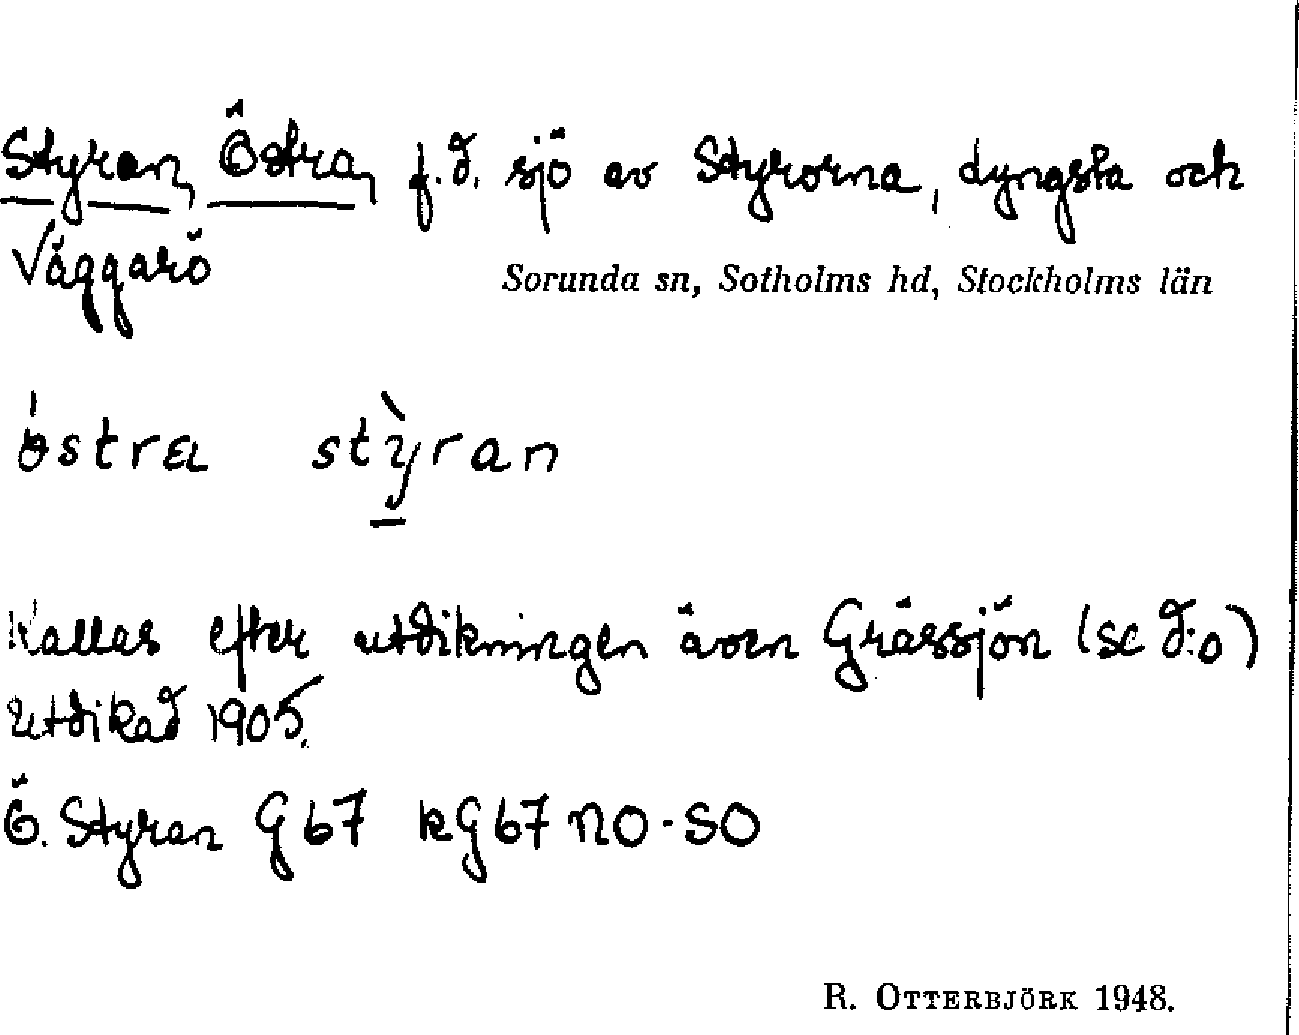 Styran, Östra, f.d. sjö av Styrorna, Lyngsta och
Väggarö
Sorunda sn, Sotholms hd, Stockholms län
östra stỳran
Kallas efter utdikningen även Grässjön (se d:o)
Utdikad 1905.
Ö. Styran G 67 kG 67 NO-SO
R. OTTERBJÖRK 1948.